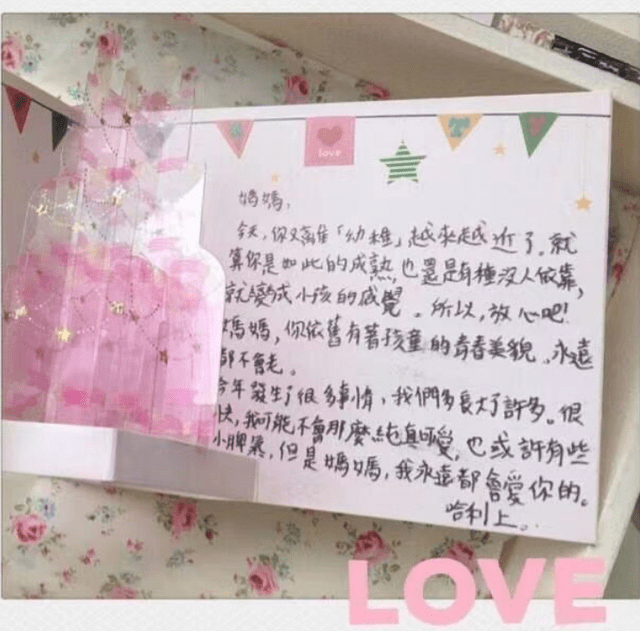 love
媽媽,
今天,你又離「幼稚」越來越近了,就
算你是如此的成熟也還是有種沒人依靠,
就變成小孩的感覺。所以,放心吧!
媽媽,你依舊有著孩童的青春美貌、永遠
都不會老。
今年發生了很多事情,我們多長大了許多。很
快,我可能不會那麼純真可愛,也或許有些
小脾氣,但是媽媽,我永遠都會愛你的。
哈利上。
LOVE